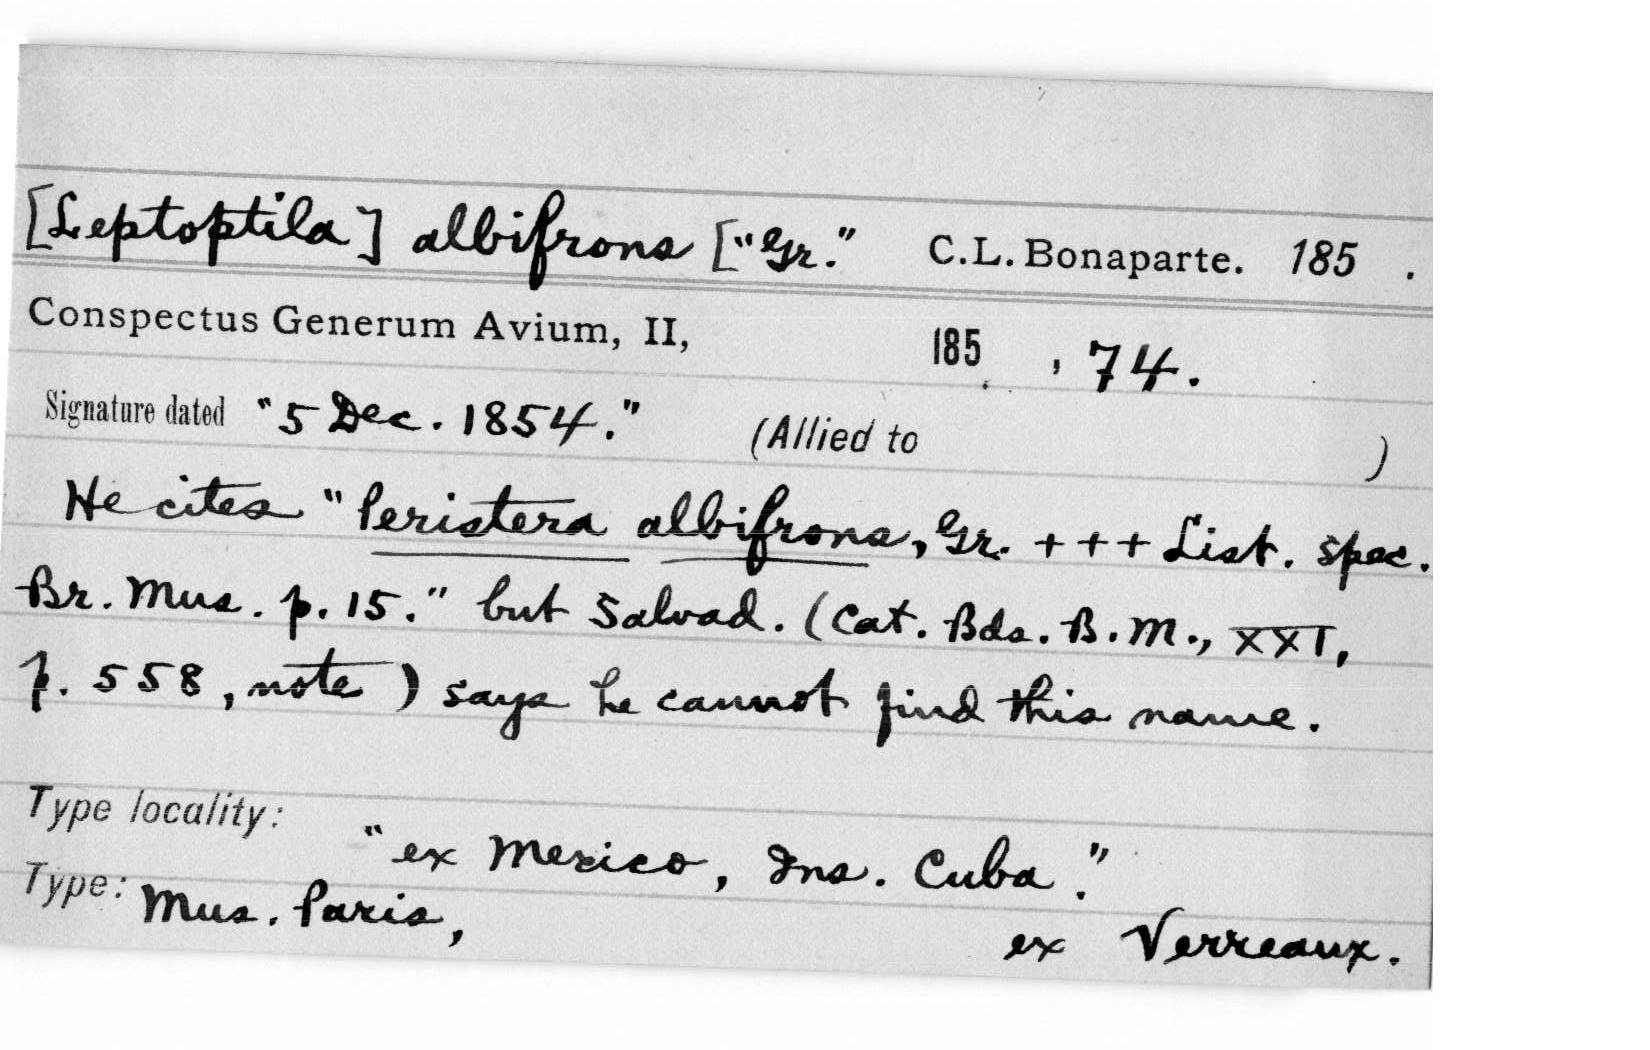 [Leptoptila] albifrons ["Gr." C.L. Bonaparte. 185 .
Conspectus Generum Avium, II, 185 , 74.
Signature dated "5 Dec. 1854." (Allied to )
He cites "Peristera albifrons, Gr. +++ List. spec.
Br. Mus. p. 15." but Salvad. (Cat. Bds. B.M., XXI,
p. 558, note) says he cannot find this name.
Type locality:
"ex Mexico, Ins. Cuba."
Type: Mus. Paris,
ex Verreaux.